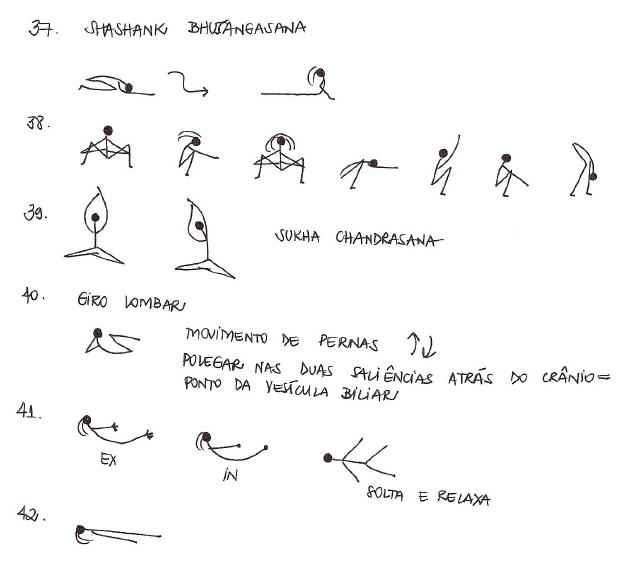 37. SHASHANK BHUJANGASANA
38.
39.
SUKHA CHANDRASANA
40. GIRO LOMBAR
MOVIMENTO DE PERNAS ↑↓
POLEGAR NAS DUAS SALIÊNCIAS ATRÁS DO CRÂNIO =
PONTO DA VESÍCULA BILIAR
41.
EX
IN
SOLTA E RELAXA
42.